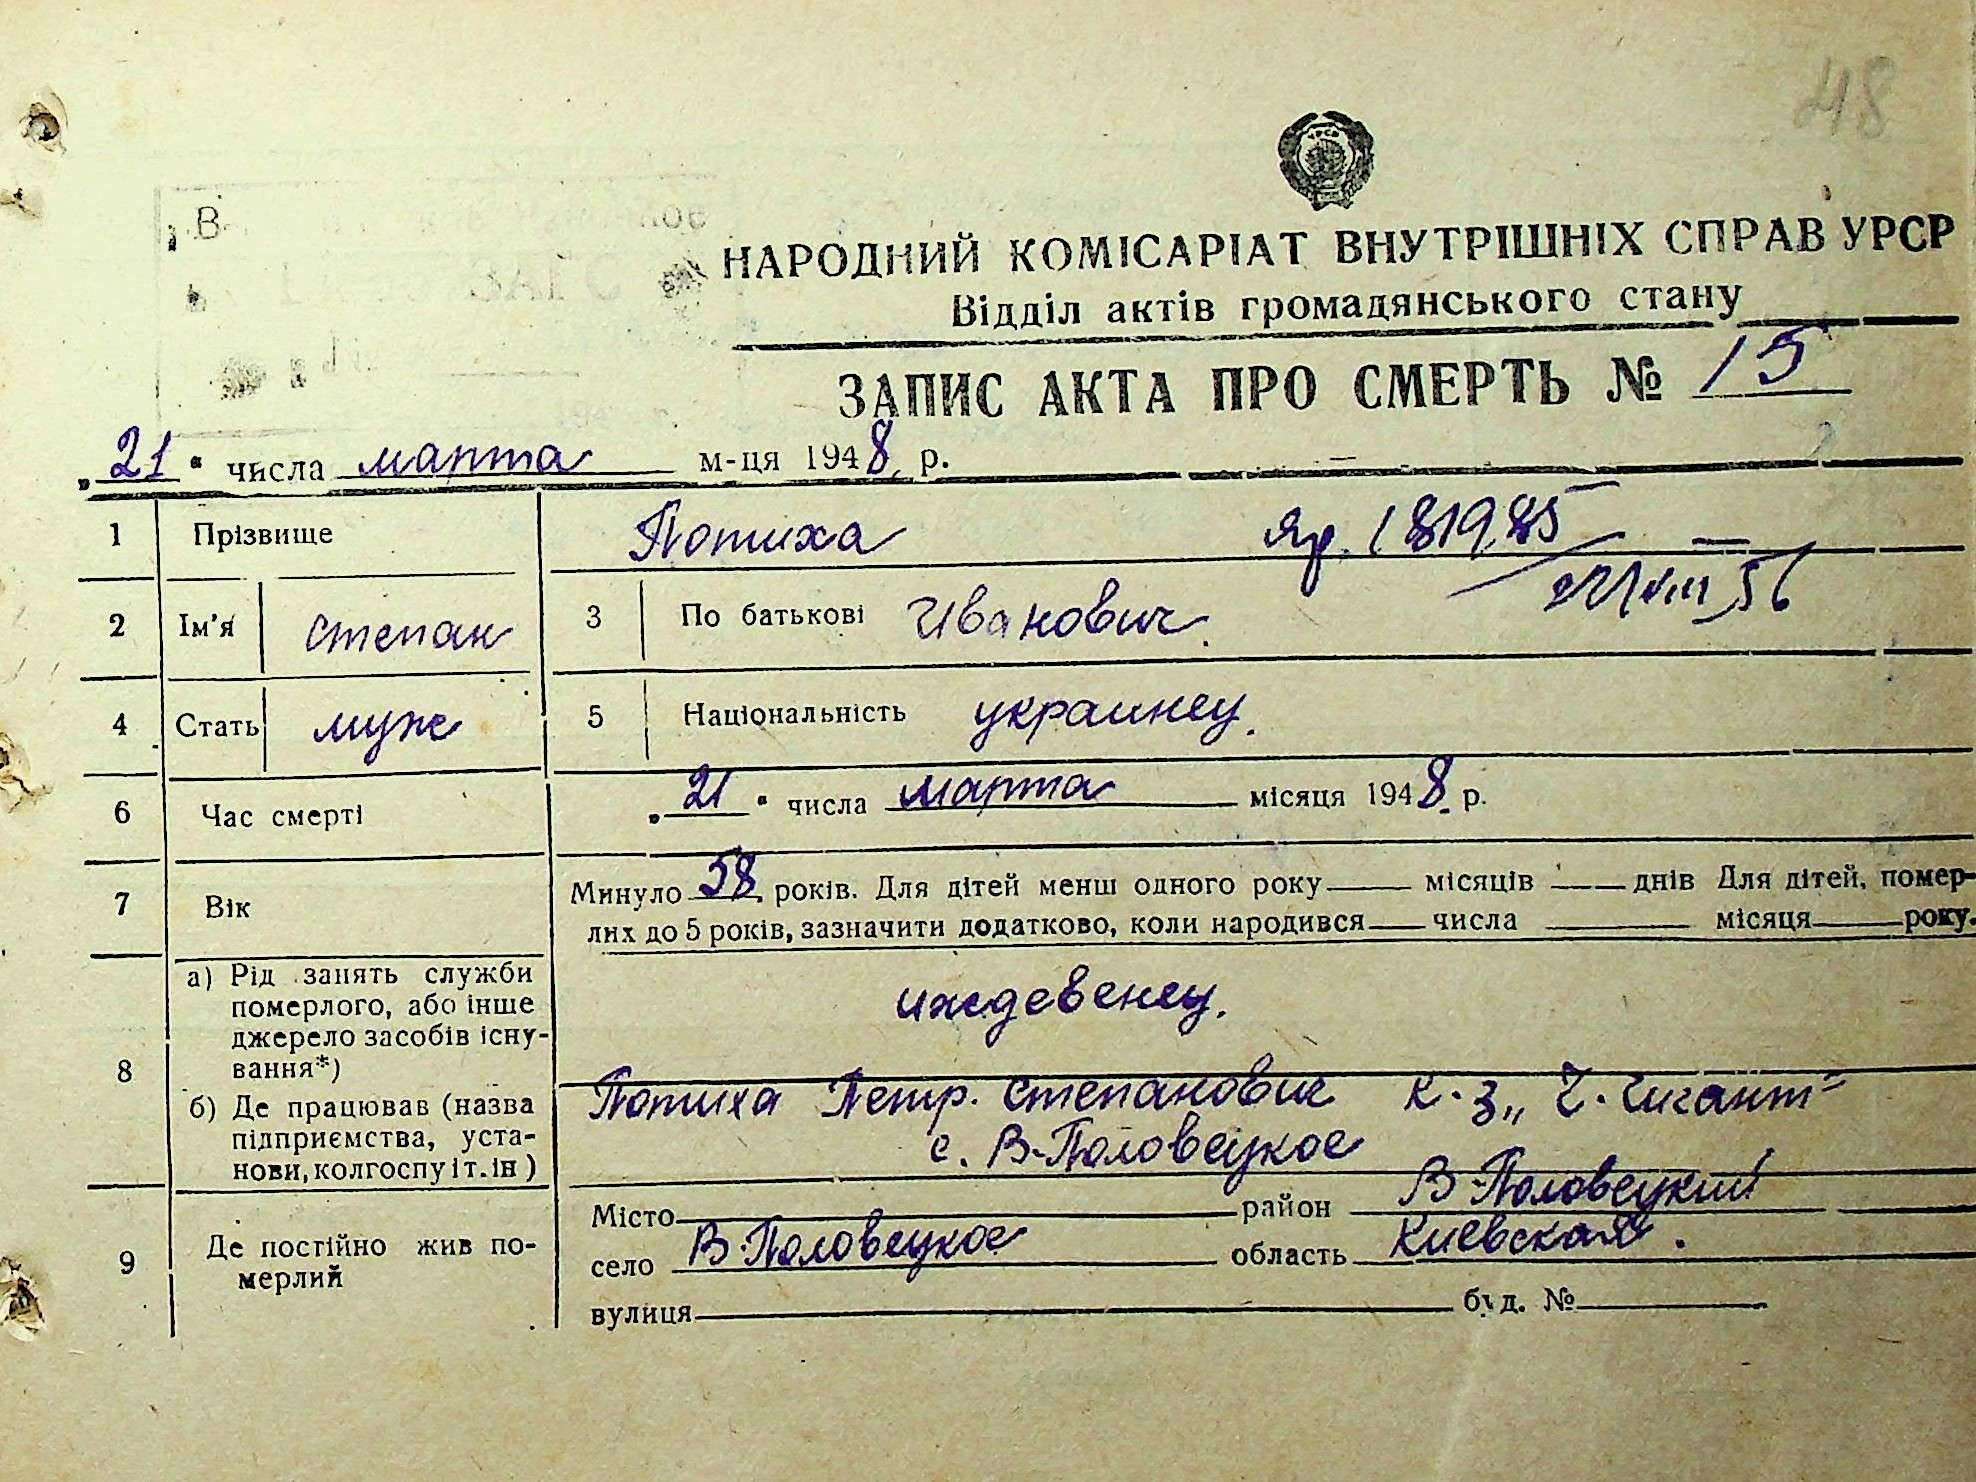 48
НАРОДНИЙ КОМІСАРІАТ ВНУТРІШНІХ СПРАВ УРСР
Відділ актів громадянського стану
ЗАПИС АКТА ПРО СМЕРТЬ № 15
„21“ числа марта м-ця 1948 р.
1 Прізвище Потиха Яр. 181985
2 Ім'я Степан 3 По батькові Иванович 56
4 Стать муж 5 Національність украинец.
6 Час смерті „21“ числа марта місяця 1948 р.
7 Вік Минуло 58 років. Для дітей менш одного року місяців днів Для дітей, помер-
лих до 5 років, зазначити додатково, коли народився числа місяця року.
8 а) Рід занять служби
померлого, або інше
джерело засобів існу-
вання*)
иждевенец.
б) Де працював (назва
підприємства, уста-
нови, колгоспу і т. ін)
Потиха Петр. Степанович К-з „Ч. Гигант"
с. В-Половецкое
9 Де постійно жив по-
мерлий
Місто район В-Половецкий
село В-Половецкое область Киевская.
вулиця буд. №